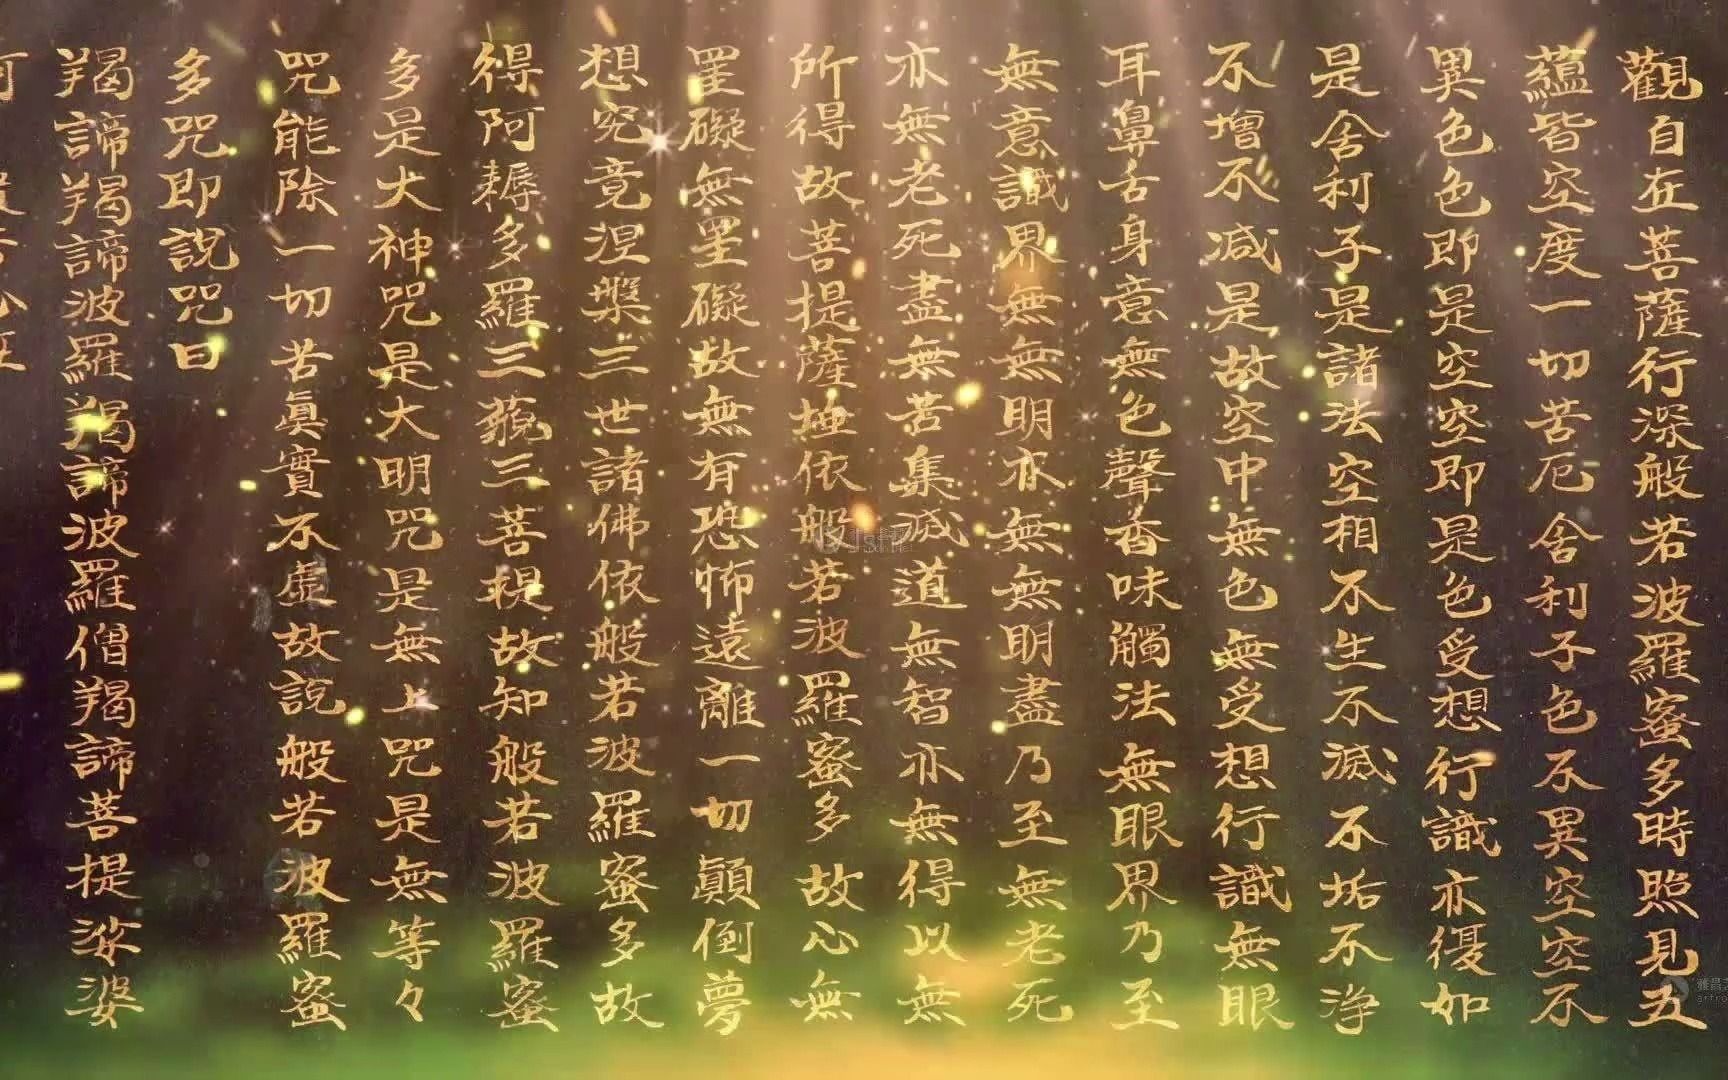 觀自在菩薩行深般若波羅蜜多時照見五
蘊皆空度一切苦厄舍利子色不異空空不
異色色即是空空即是色受想行識亦復如
是舍利子是諸法空相不生不滅不垢不淨
不增不減是故空中無色無受想行識無眼
耳鼻舌身意無色聲香味觸法無眼界乃至
無意識界無無明亦無無明盡乃至無老死
亦無老死盡無苦集滅道無智亦無得以無
所得故菩提薩埵依般若波羅蜜多故心無
罣礙無罣礙故無有恐怖遠離一切顛倒夢
想究竟涅槃三世諸佛依般若波羅蜜多故
得阿耨多羅三藐三菩提故知般若波羅蜜
多是大神咒是大明咒是無上咒是無等々
咒能除一切苦真實不虛故說般若波羅蜜
多咒即說咒曰
羯諦羯諦波羅羯諦波羅僧羯諦菩提娑婆